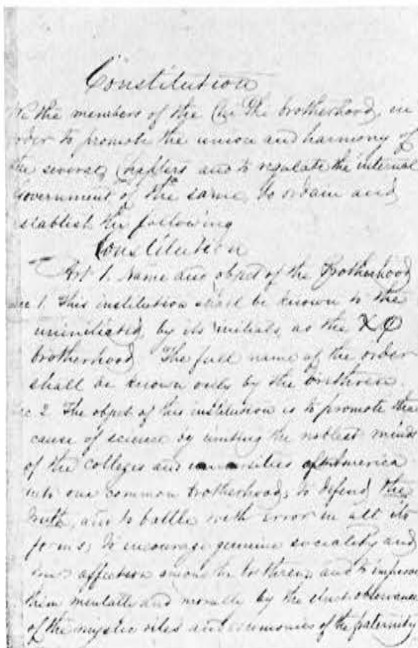 Constitution
We the members of the Chi Phi brotherhood, in
order to promote the union and harmony of
the several Chapters and to regulate the internal
government of the same, do ordain and
establish the following
Constitution
Art 1. Name and object of the Brotherhood
Sec 1. This institution shall be known to the
uninitiated, by its initials, as the Χ Φ
brotherhood. The full name of the order
shall be known only by the brethren.
Sec 2. The object of this institution is to promote the
cause of science by uniting the noblest minds
of the colleges and universities of America
into one common brotherhood; to defend the
truth, and to battle with error in all its
forms; to encourage genuine sociality and
affection among the brethren, and to improve
them mentally and morally by the observance
of the mystic rites and ceremonies of the fraternity